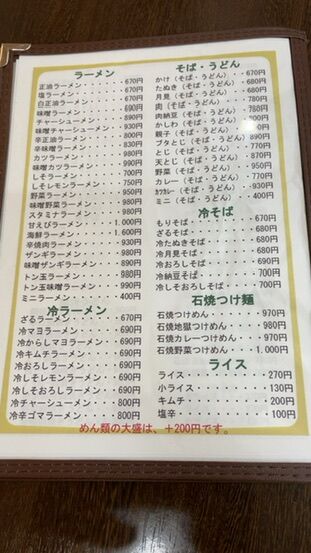 ラーメン
正油ラーメン・・・・・・670円
塩ラーメン・・・・・・・670円
白正油ラーメン・・・・・690円
味噌ラーメン・・・・・・690円
チャーシューメン・・・・890円
味噌チャーシューメン・・930円
辛正油ラーメン・・・・・800円
辛味噌ラーメン・・・・・830円
カツラーメン・・・・・・900円
味噌カツラーメン・・・・990円
しそラーメン・・・・・・700円
しそレモンラーメン・・・750円
野菜ラーメン・・・・・・950円
味噌野菜ラーメン・・・・980円
スタミナラーメン・・・・980円
甘えびラーメン・・・・1.000円
海鮮ラーメン・・・・・1.600円
辛焼肉ラーメン・・・・・930円
ザンギラーメン・・・・・980円
味噌ザンギラーメン・・・980円
トン玉ラーメン・・・・・980円
トン玉味噌ラーメン・・・990円
ミニラーメン・・・・・・400円
冷ラーメン
ざるラーメン・・・・・・690円
冷マヨラーメン・・・・・690円
冷からしマヨラーメン・・690円
冷キムチラーメン・・・・690円
冷おろしラーメン・・・・690円
冷しそレモンラーメン・・690円
冷しそおろしラーメン・・690円
冷チャーシューメン・・・800円
冷辛ゴマラーメン・・・・800円
そば・うどん
かけ（そば・うどん）・・670円
たぬき（そば・うどん）・680円
月見（そば・うどん）・・780円
肉（そば・うどん）
肉納豆（そば・うどん）
かしわ（そば・うどん）
親子（そば・うどん）
ブタとじ（そば・うどん）
とじ（そば・うどん）
天とじ（そば・うどん）
野菜（そば・うどん）・・950円
カレー（そば・うどん）・750円
カツカレー（そば・うどん）・930円
ミニ（そば・うどん）・・400円
冷そば
もりそば・・・・・・・・670円
ざるそば・・・・・・・・680円
冷たぬきそば・・・・・・680円
冷月見そば・・・・・・・680円
冷おろしそば・・・・・・700円
冷納豆そば・・・・・・・700円
冷しそおろしそば・・・・700円
石焼つけ麺
石焼つけめん・・・・・・970円
石焼地獄つけめん・・・・980円
石焼カレーつけめん・・・970円
石焼野菜つけめん・・・1.000円
ライス
ライス・・・・・・・・・270円
小ライス・・・・・・・・130円
キムチ・・・・・・・・・200円
塩辛・・・・・・・・・・100円
めん類の大盛は、＋200円です。